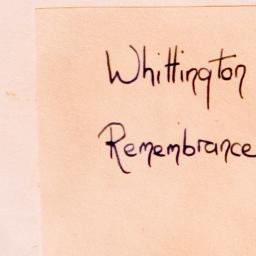 Whittington
Remembrance